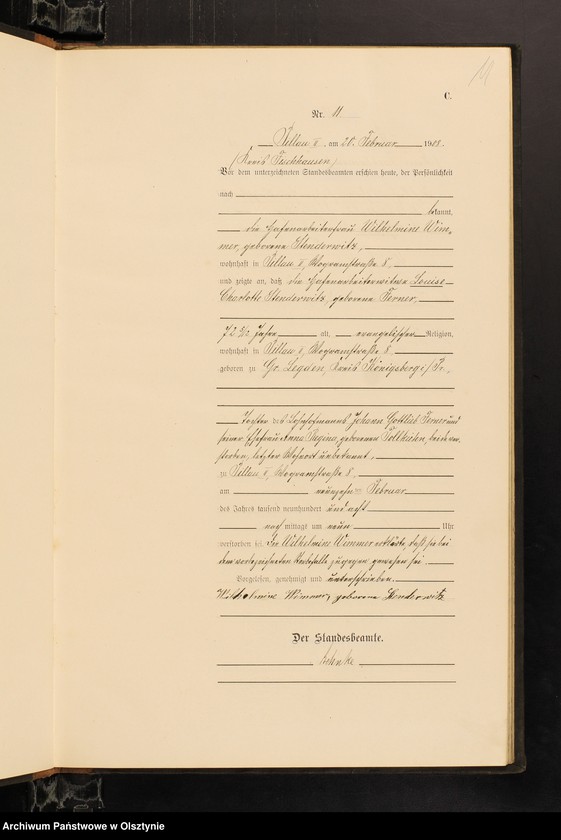 C.
Nr. 11
Pillau II, am 20. Februar 1908.
(Kreis Fischhausen)
Vor dem unterzeichneten Standesbeamten erschien heute, der Persönlichkeit
nach
bekannt,
die Hafenarbeiterfrau Wilhelmine Wim-
mer, geborene Stenderwitz,
wohnhaft in Pillau II, 8
und zeigte an, daß die Hafenarbeiterwitwe Louise
Charlotte Stenderwitz, geborene Ferner,
72 5/12 Jahre alt, evangelischer Religion,
wohnhaft in Pillau II, 8
geboren zu Gr. Legden, Kreis Königsberg i/Pr.,
Tochter des Johann Gottlieb Ferner und
seiner Ehefrau Anna Regina, geborenen Tollkühn, beide ver-
storben, letzter Wohnort unbekannt,
zu Pillau II, 8
am neunzehnten Februar
des Jahres tausend neunhundert und acht
nach mittags um neun Uhr
verstorben sei. Die Wilhelmine Wimmer erklärte, daß sie bei
dem vorbezeichneten Sterbefalle zugegen gewesen sei.
Vorgelesen, genehmigt und unterschrieben.
Wilhelmine Wimmer, geborene Stenderwitz
Der Standesbeamte.
Archiwum Państwowe w Olsztynie